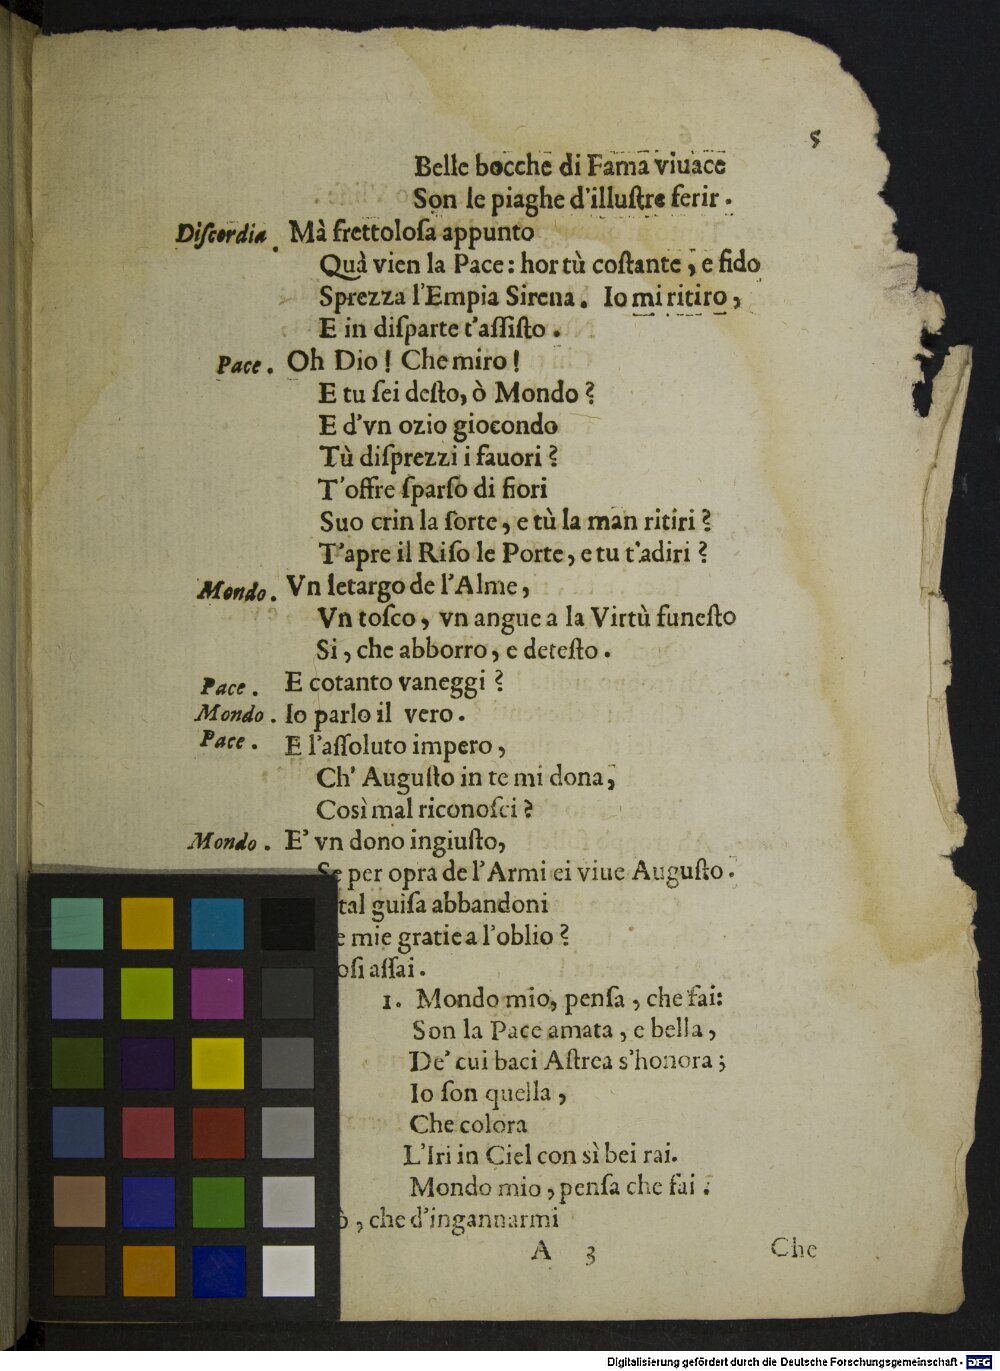 5
Belle bocche di Fama viuace
Son le piaghe d'illuſtre ferir.
Diſcordia. Mà frettoloſa appunto
Quà vien la Pace: hor tù coſtante, e fido
Sprezza l'Empia Sirena. Io mi ritiro,
E in diſparte t'aſſiſto.
Pace. Oh Dio! Che miro!
E tu ſei deſto, ò Mondo?
E d'vn ozio giocondo
Tù diſprezzi i fauori?
T'offre ſparſo di fiori
Suo crin la ſorte, e tù la man ritiri?
T'apre il Riſo le Porte, e tu t'adiri?
Mondo. Vn letargo de l'Alme,
Vn toſco, vn angue a la Virtù funeſto
Si, che abborro, e deteſto.
Pace. E cotanto vaneggi?
Mondo. Io parlo il vero.
Pace. E l'aſſoluto impero,
Ch' Auguſto in te mi dona,
Così mal riconoſci?
Mondo. E' vn dono ingiuſto,
Se per opra de l'Armi ei viue Auguſto.
tal guiſa abbandoni
e mie gratie a l'oblio?
oſi aſſai.
1. Mondo mio, penſa, che fai:
Son la Pace amata, e bella,
De' cui baci Aſtrea s'honora;
Io ſon quella,
Che colora
L'Iri in Ciel con sì bei rai.
Mondo mio, penſa che fai.
ò, che d'ingannarmi
A 3 Che
Digitalisierung gefördert durch die Deutsche Forschungsgemeinschaft - DFG